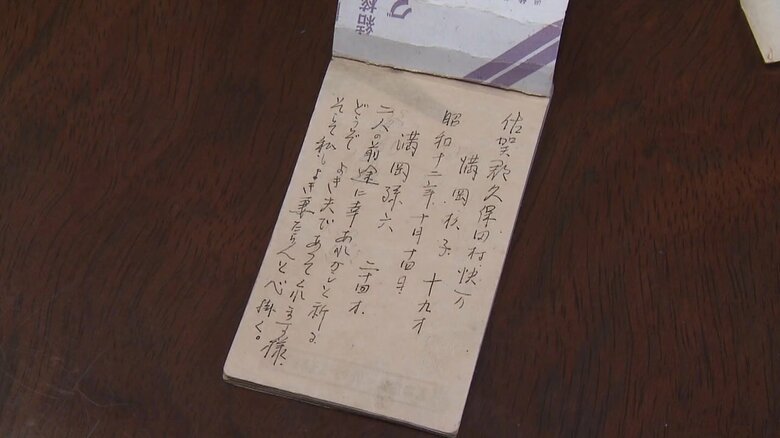 グ
結核
佐賀郡久保田村快万
満岡杉子 十九才
昭和十二年十月十四日
満岡孫六 二十四才
二人の前途に幸あれかしと祈る
どうぞよき夫であってくれます様
そして私もよき妻たらんと心掛く。